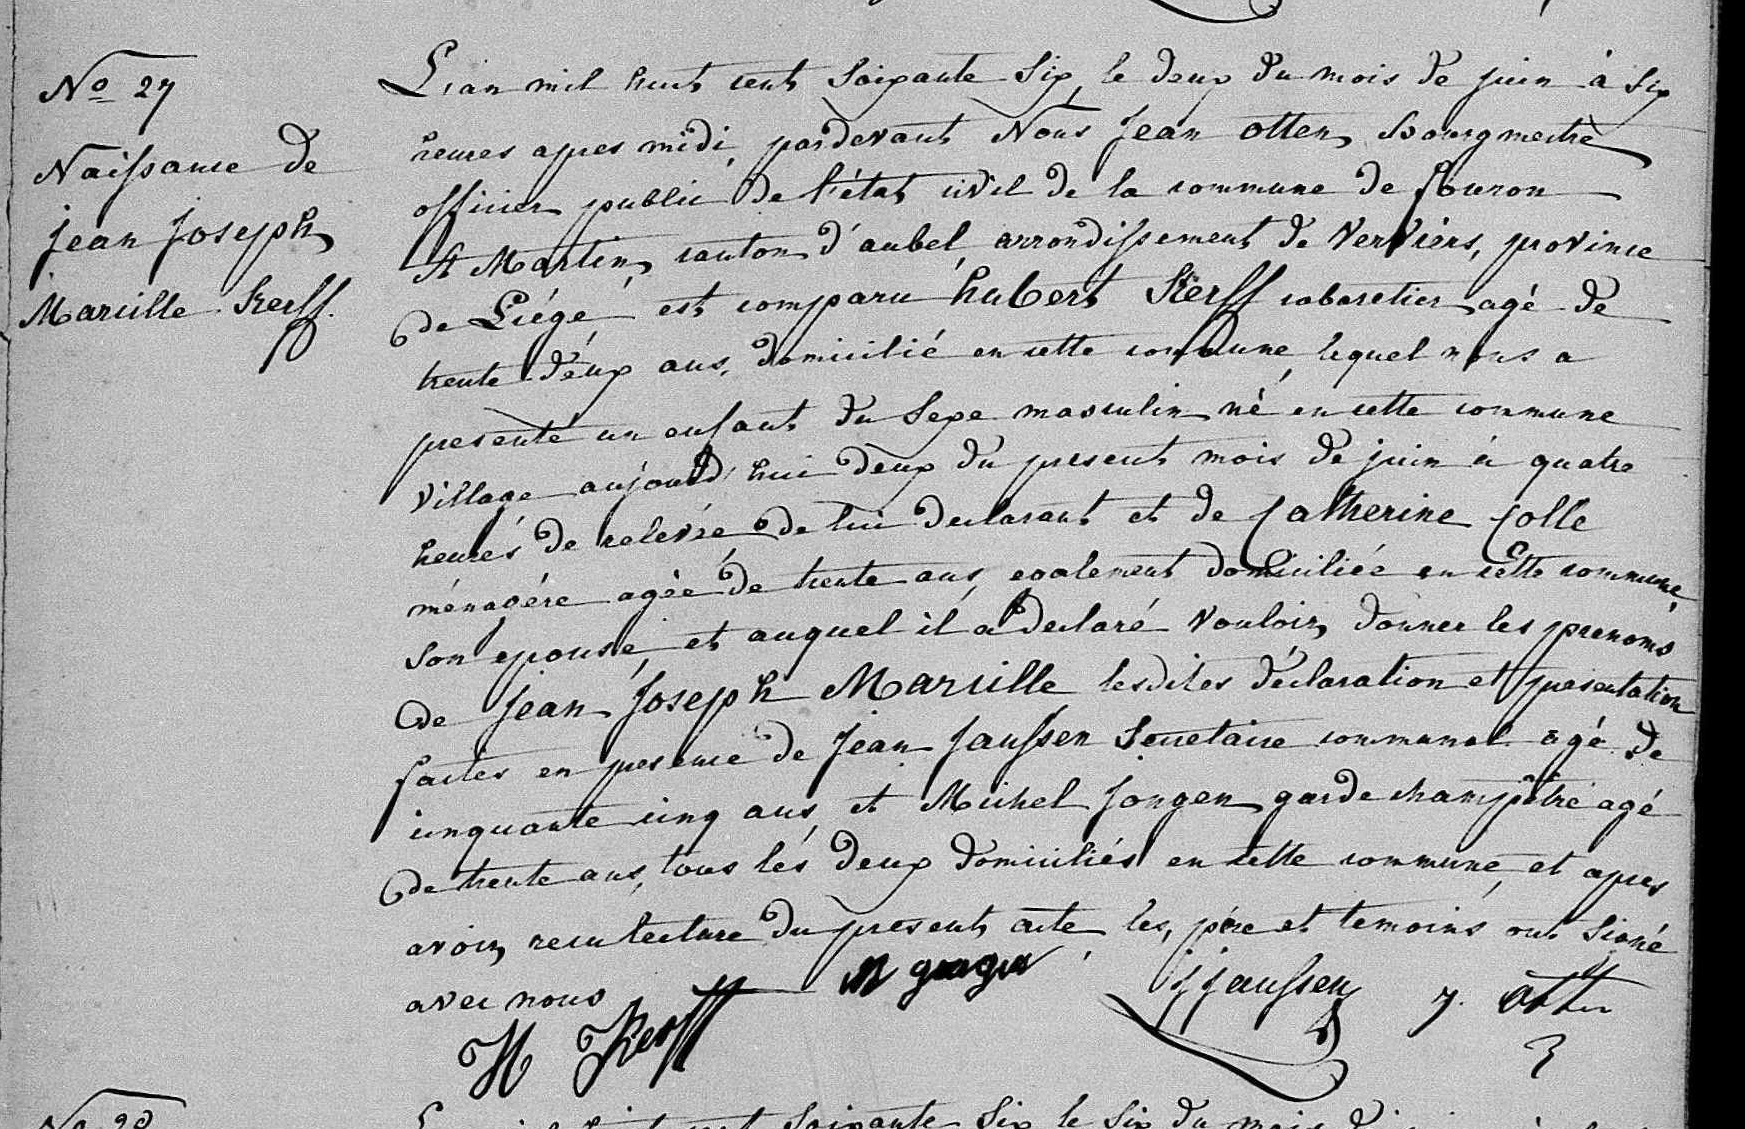 No 27
Naissance de
jean joseph
Marcille Kerff.
L'an mil huit cent soixante six, le deux du mois de juin à six
heures apres midi, pardevant Nous jean otten Bourgmestre
officier public de l'état civil de la commune de fouron
St Martin, canton d'aubel, arrondissement de Verviérs, province
de Liége, est comparu hubert Kerff cabaretier agé de
trente deux ans, domicilié en cette commune, lequel nous a
presenté un enfant du sexe masculin né en cette commune
village aujourd'hui deux du present mois de juin à quatre
heures de relevée de lui declarant et de Catherine Colle
ménagére agée de trente ans, egalement domiciliée en cette commune,
son epouse, et auquel il a declaré vouloir donner les prenoms
de jean joseph Marcille, lesdites déclaration et presentation
faites en presence de jean janssen Secretaire communal agé de
cinquante cinq ans, et Michel jongen garde champêtre agé
de trente ans, tous les deux domiciliés en cette commune, et apres
avoir recu lecture du present acte, les, pére et temoins ont signé
avec nous
H Kerff
j janssen
j. otten
No 28
soixante six le six du mois